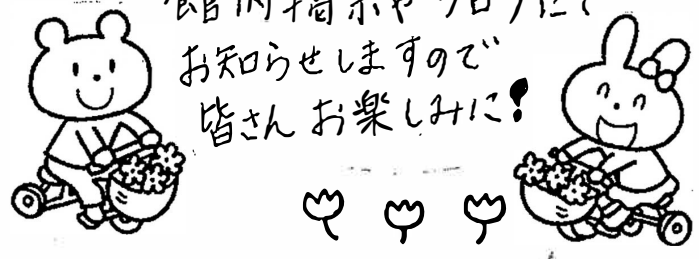 館内掲示やブログにて
お知らせしますので
皆さんお楽しみに!